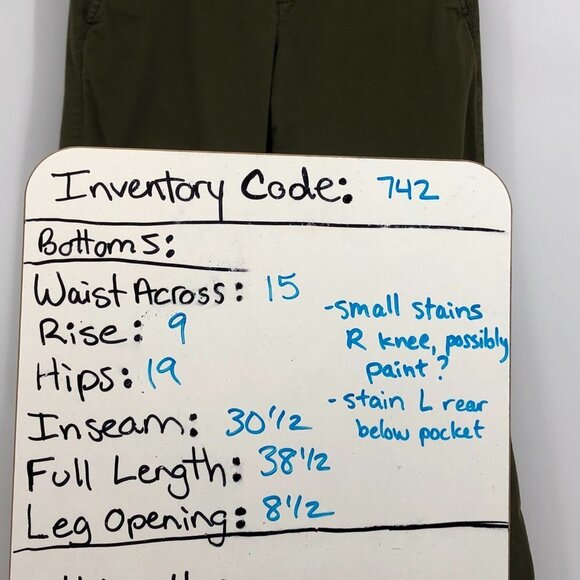 Inventory Code: 742
Bottoms:
Waist Across: 15
Rise: 9
Hips: 19
Inseam: 30 1/2
Full Length: 38 1/2
Leg Opening: 8 1/2
-small stains
R knee, possibly
paint?
-stain L rear
below pocket